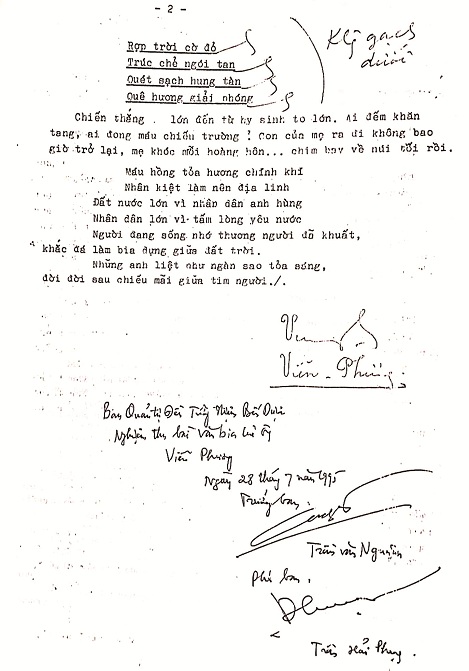 - 2 -
Rợp trời cờ đỏ
Trúc chẻ ngói tan
Quét sạch hung tàn
Quê hương giải phóng
Không gạch
dưới
Chiến thắng . lớn đến từ hy sinh to lớn. Ai đếm khăn
tang, ai đong máu chiến trường ! Con của mẹ ra đi không bao
giờ trở lại, mẹ khóc mỗi hoàng hôn... chim bay về núi tối rồi.
Máu hồng tỏa hương chính khí
Nhân kiệt làm nên địa linh
Đất nước lớn vì nhân dân anh hùng
Nhân dân lớn vì tấm lòng yêu nước
Người đang sống nhớ thương người đã khuất,
khắc đá làm bia dựng giữa đất trời.
Những anh liệt như ngàn sao tỏa sáng,
đời đời sau chiếu mãi giữa tim người./.
Viễn - Phương
Ban Quản trị Đền Bến Dược
Nghiệm thu bài văn bia
Viễn Phương
Ngày 28 tháng 7 năm 1995
Trưởng ban.
Trần văn Nguyên
Phó ban.
Trần Hải Phụng